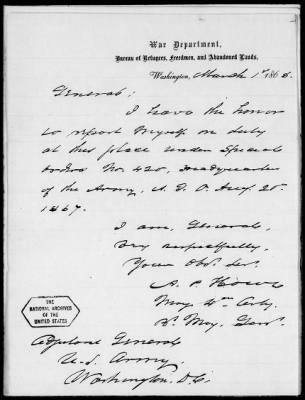 War Department,
Bureau of Refugees, Freedmen, and Abandoned Lands,
Washington, March 1st 1868.
General;
I have the honor
to report myself on duty
at this place under Special
Orders No. 420, Headquarters
of the Army, A. G. O. Aug 20.
1867.
I am, General,
Very respectfully,
Your Obt. Ser.
A. P. Howe
Maj. 4th Arty.
Bt. Maj. Genl.
THE
NATIONAL ARCHIVES
OF THE
UNITED STATES
Adjutant General
U.S. Army,
Washington, D.C.